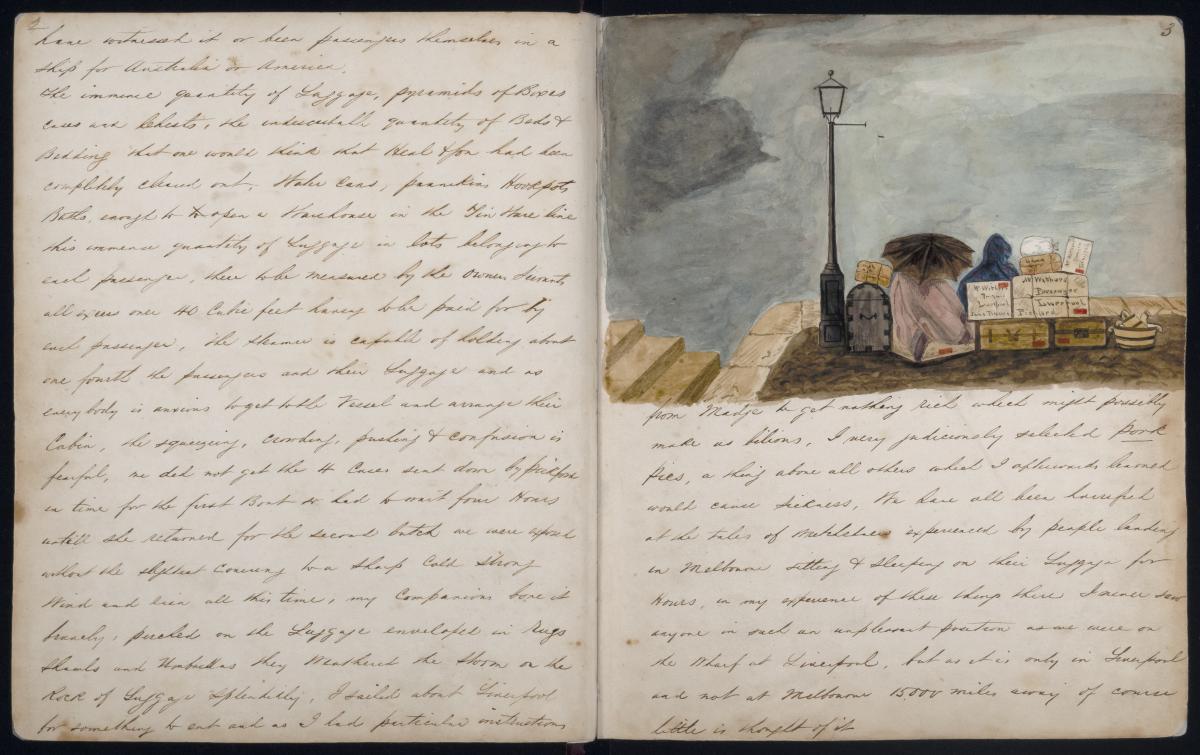 2
have witnessed it or been passengers themselves in a
ship for Australia or America.
The immence quantity of Luggage, pyramids of Boxes
cases and Chests, the indescribable quantity of Beds &
Bedding that one would think that Heal & Son had been
completely cleared out. Water Cans, pannikins Hookpots
Baths, enough to open a Warehouse in the Tin Ware line
this immence quantity of Luggage in lots belonging to
each passenger, there to be measured by the Owners Servants
all excess over 40 Cubic feet having to be paid for by
each passenger, the steamer is capable of holding about
one fourth the passengers and their Luggage and as
every body is anxious to get to the Vessel and arrange their
Cabin, the squeezing, crowding, pushing & confusion is
fearful, we did not get the 4 Cases sent down by
in time for the first Boat so had to wait four Hours
untill she returned for the second batch we were exposed
without the slightest Covering to a sharp Cold Strong
Wind and all this time, my Companions bore it
bravely, perched on the Luggage enveloped in Rugs
Shawls and Umbrellas they Weathered the Storm on the
Rock of Luggage Splendidly, I sailed about Liverpool
for something to eat and as I had particular instructions
3
Withers
Passenger
Liverpool
Liverpool
from Madge to get nothing rich which might possibly
make us bilious, I very judiciously selected Pork
Pies, a thing above all others which I afterwards learned
would cause Sickness, We have all been harrified
at the tales of experienced by people landing
in Melbourne sitting & sleeping on their Luggage for
Hours, in my experience of these things there I never saw
anyone in such an unpleasant position as we were on
the Wharf at Liverpool, but as it is only in Liverpool
and not at Melbourne 15,000 miles away of course
little is thought of it